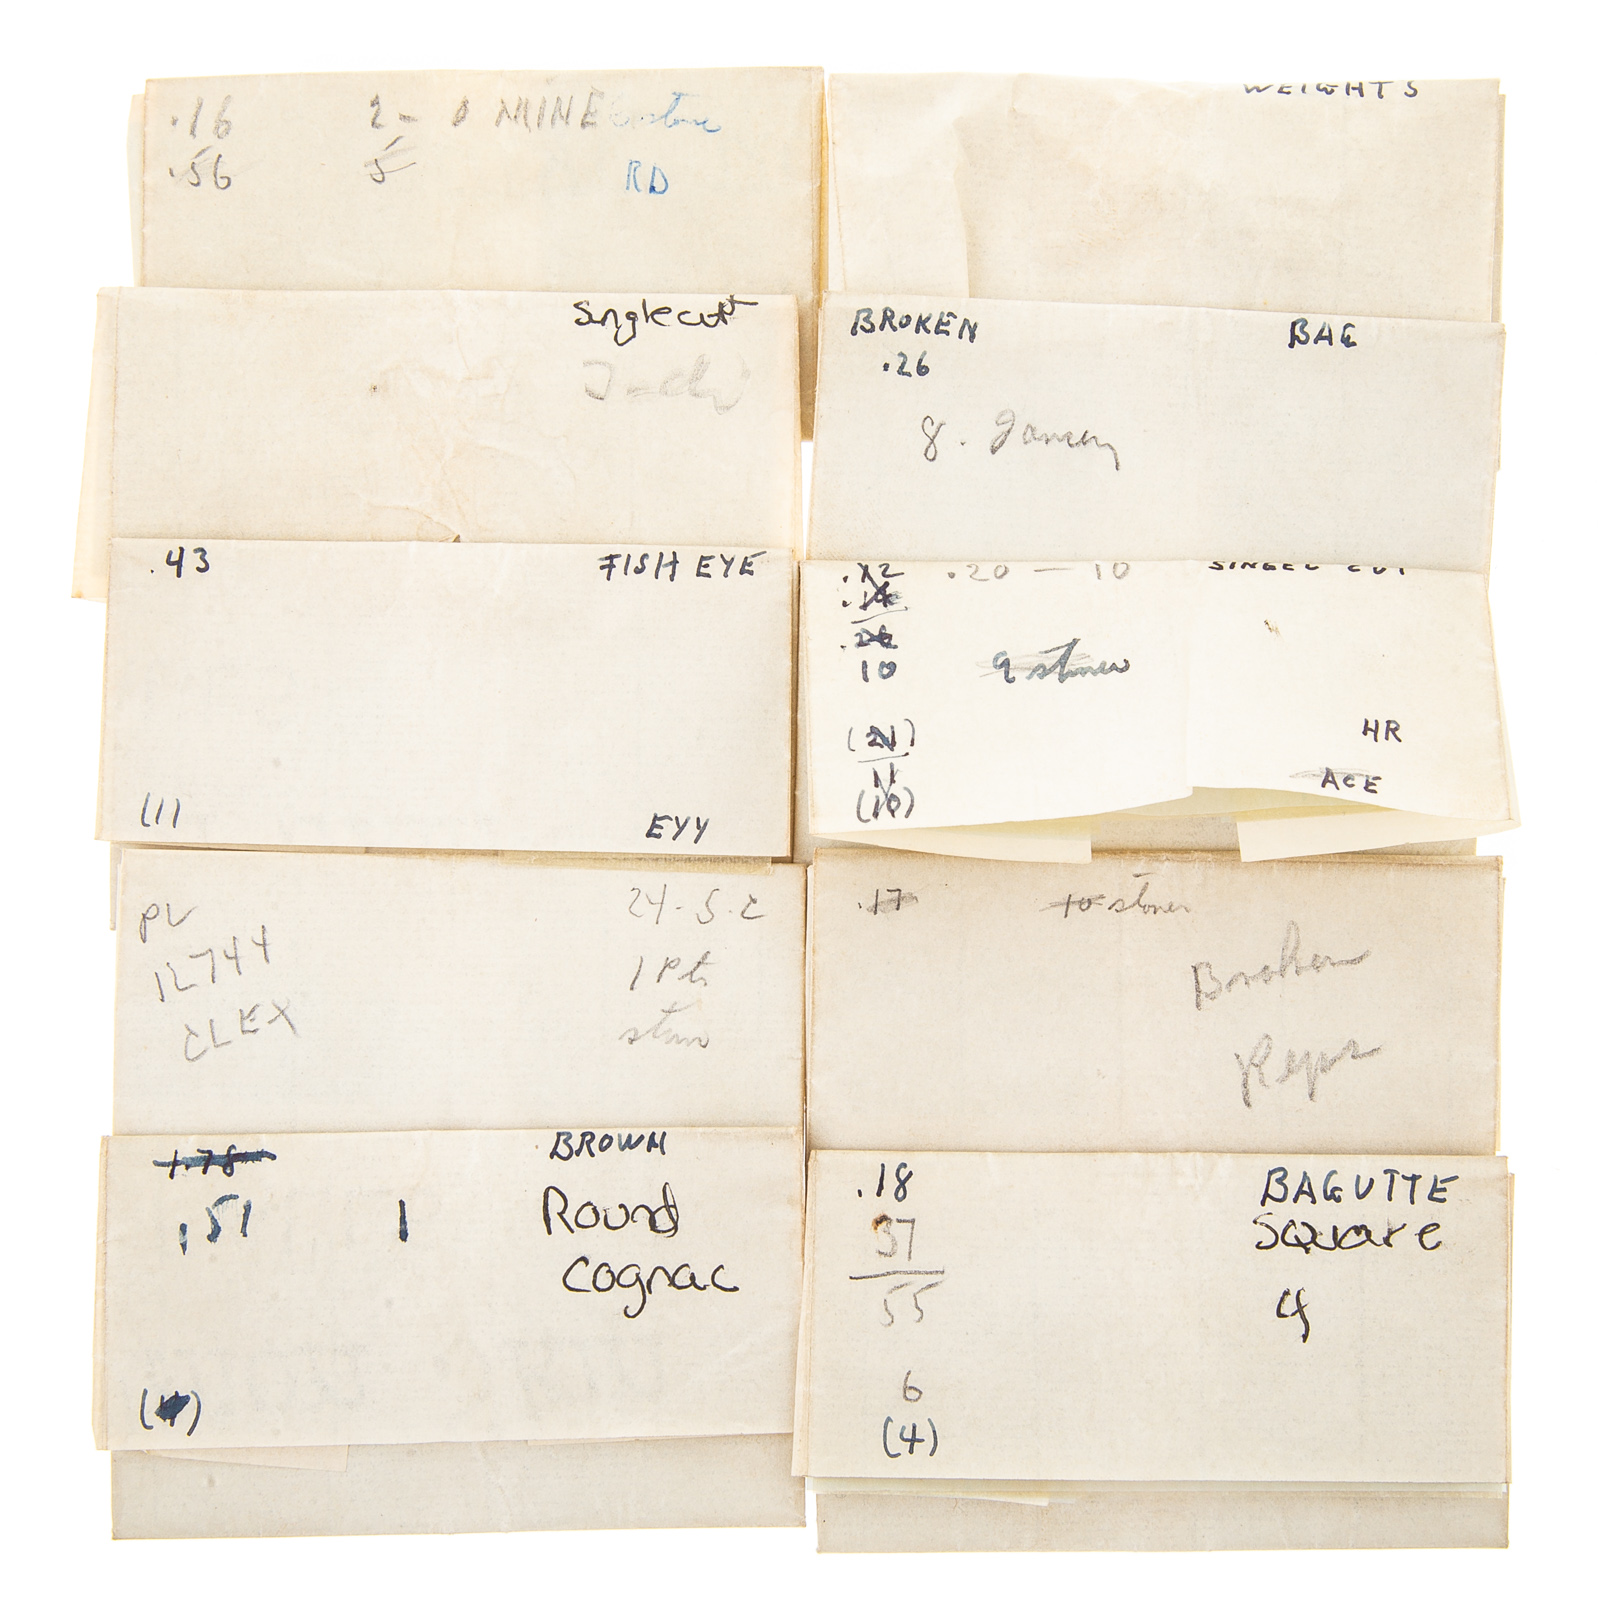 .16 2- MINE stone
.56 5 RD
Singlecut
.43 FISH EYE
(1) EYY
24-S.C
12744 1 Pt
CLEX
1.78 BROWN
.51 1 Round
Cognac
WEIGHTS
BROKEN BAG
.26
8.
.12 .20 — 10 SINGEL CUT
10 9 stones
(21) HR
11 ACE
(10)
.17 10 stones
Broken
.18 BAGUTTE
37 Square
55 4
6
(4)